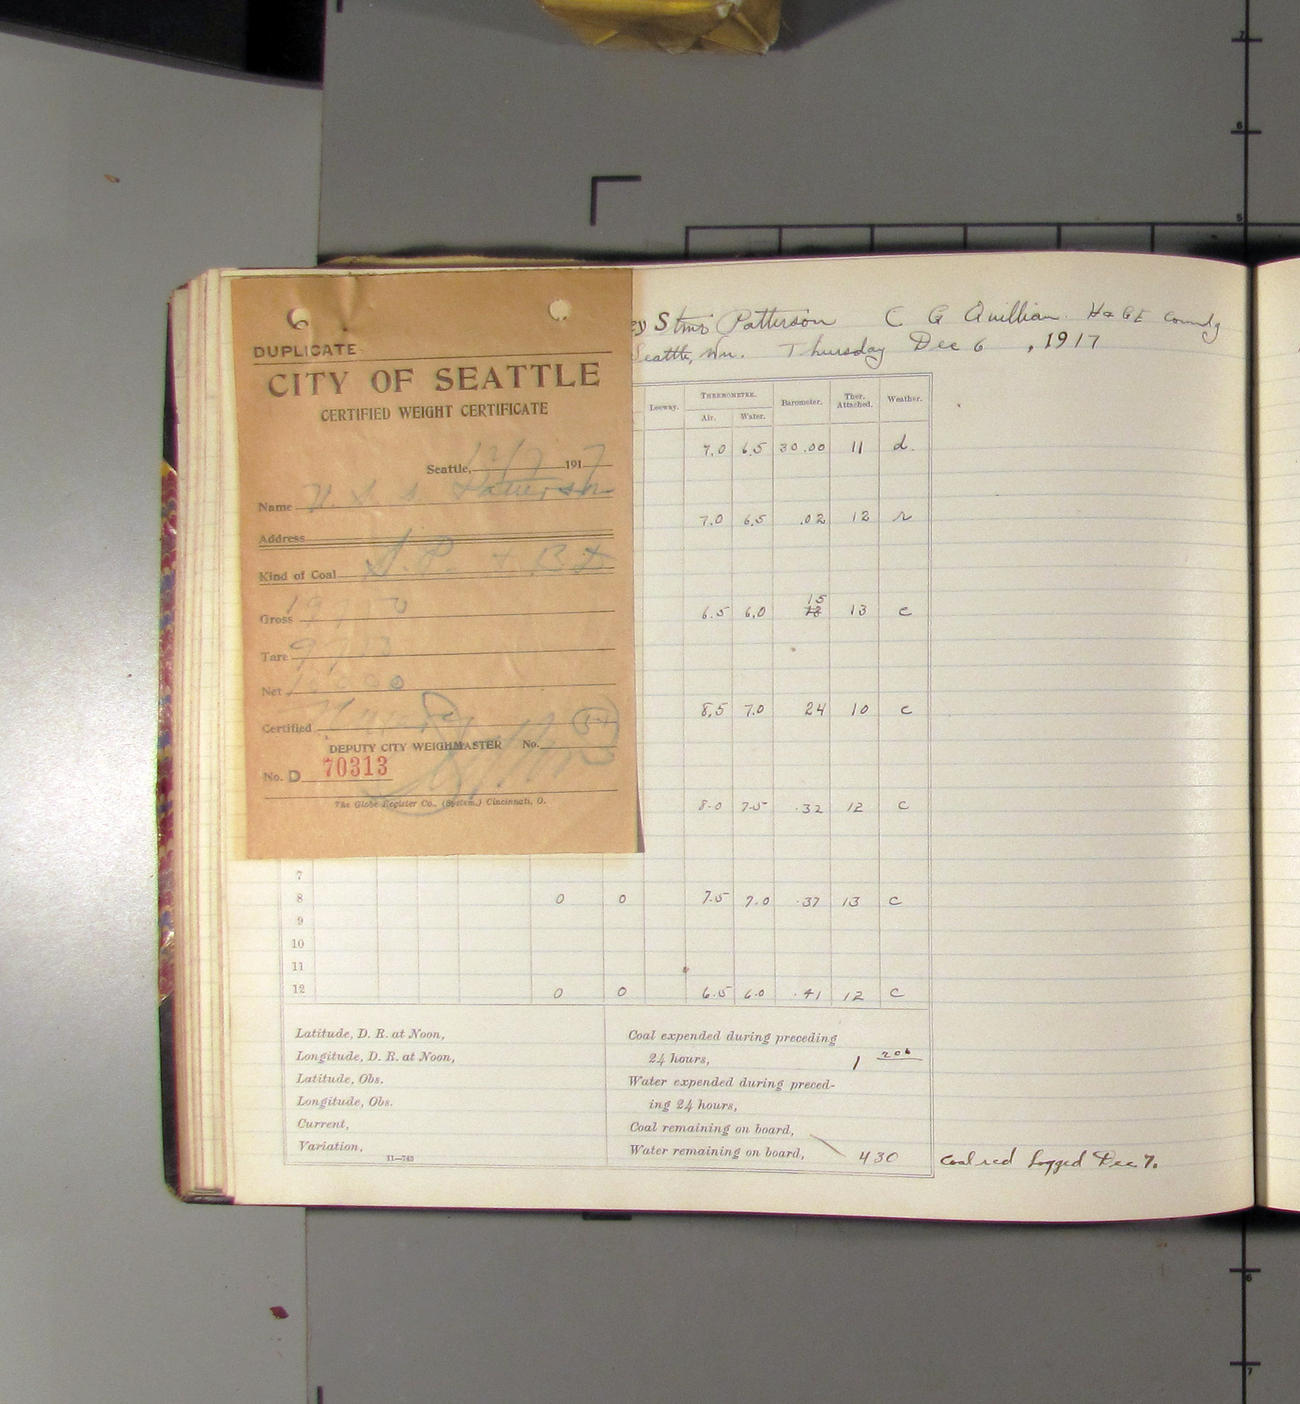 DUPLICATE
CITY OF SEATTLE
CERTIFIED WEIGHT CERTIFICATE
Seattle, 12/7 1917
Name U. S. S. Patterson
Address
Kind of Coal S.P. + B
Gross 19750
Tare 9750
Net 10000
Certified
DEPUTY CITY WEIGHMASTER No.
No. D 70313
The Globe Register Co., (System.) Cincinnati, O.
ey Stmr Patterson C G Quillian H & GE Comndg
Seattle, Wn. Thursday Dec 6 , 1917
Leeway. THERMOMETER. Barometer. Ther. Attached. Weather.
Air. Water.
7.0 6.5 30.00 11 d.
7.0 6.5 .02 12 r
15
6.5 6.0 13 c
8.5 7.0 24 10 c
8.0 7.5 .32 12 c
7
8 0 0 7.5 7.0 .37 13 c
9
10
11
12 0 0 6.5 6.0 .41 12 c
Latitude, D. R. at Noon,
Longitude, D. R. at Noon,
Latitude, Obs.
Longitude, Obs.
Current,
Variation,
11—743
Coal expended during preceding
24 hours, 1 206
Water expended during preced-
ing 24 hours,
Coal remaining on board,
Water remaining on board, 430
Coal recd logged Dec 7.
7
6
5
6
7